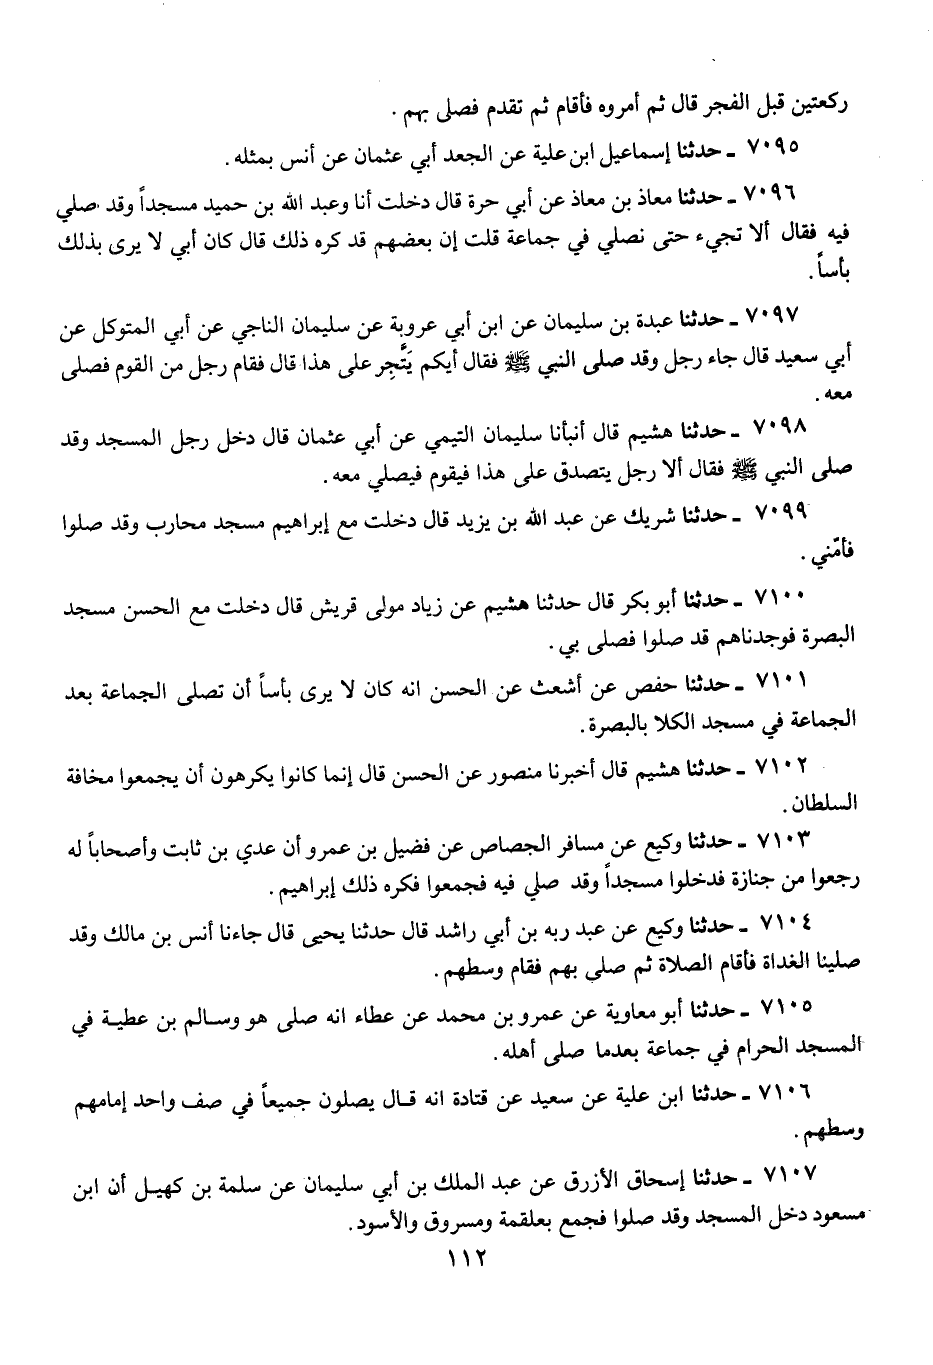 ركعتين قبل الفجر قال ثم أمروه فأقام ثم تقدم فصلى بهم .
٧٠٩٥ ـ حدثنا إسماعيل ابن علية عن الجعد أبي عثمان عن أنس بمثله .
٧٠٩٦ ـ حدثنا معاذ بن معاذ عن أبي حرة قال دخلت أنا وعبد الله بن حميد مسجداً وقد صلي
فيه فقال ألا تجيء حتى نصلي في جماعة قلت إن بعضهم قد كره ذلك قال كان أبي لا يرى بذلك
بأساً .
٧٠٩٧ ـ حدثنا عبدة بن سليمان عن ابن أبي عروبة عن سليمان الناجي عن أبي المتوكل عن
أبي سعيد قال جاء رجل وقد صلى النبي ﷺ فقال أيكم يَتَّجِر على هذا قال فقام رجل من القوم فصلى
معه .
٧٠٩٨ ـ حدثنا هشيم قال أنبأنا سليمان التيمي عن أبي عثمان قال دخل رجل المسجد وقد
صلى النبي ﷺ فقال ألا رجل يتصدق على هذا فيقوم فيصلي معه .
٧٠٩٩ ـ حدثنا شريك عن عبد الله بن يزيد قال دخلت مع إبراهيم مسجد محارب وقد صلوا
فأمّني .
٧١٠٠ ـ حدثنا أبو بكر قال حدثنا هشيم عن زياد مولى قريش قال دخلت مع الحسن مسجد
البصرة فوجدناهم قد صلوا فصلى بي .
٧١٠١ ـ حدثنا حفص عن أشعث عن الحسن انه كان لا يرى بأساً أن تصلى الجماعة بعد
الجماعة في مسجد الكلا بالبصرة .
٧١٠٢ ـ حدثنا هشيم قال أخبرنا منصور عن الحسن قال إنما كانوا يكرهون أن يجمعوا مخافة
السلطان .
٧١٠٣ ـ حدثنا وكيع عن مسافر الجصاص عن فضيل بن عمرو أن عدي بن ثابت وأصحاباً له
رجعوا من جنازة فدخلوا مسجداً وقد صلي فيه فجمعوا فكره ذلك إبراهيم .
٧١٠٤ ـ حدثنا وكيع عن عبد ربه بن أبي راشد قال حدثنا يحيى قال جاءنا أنس بن مالك وقد
صلينا الغداة فأقام الصلاة ثم صلى بهم فقام وسطهم .
٧١٠٥ ـ حدثنا أبو معاوية عن عمرو بن محمد عن عطاء انه صلى هو وسالم بن عطية في
المسجد الحرام في جماعة بعدما صلى أهله .
٧١٠٦ ـ حدثنا ابن علية عن سعيد عن قتادة انه قال يصلون جميعاً في صف واحد إمامهم
وسطهم .
٧١٠٧ ـ حدثنا إسحاق الأزرق عن عبد الملك بن أبي سليمان عن سلمة بن كهيل أن ابن
مسعود دخل المسجد وقد صلوا فجمع بعلقمة ومسروق والأسود .
١١٢